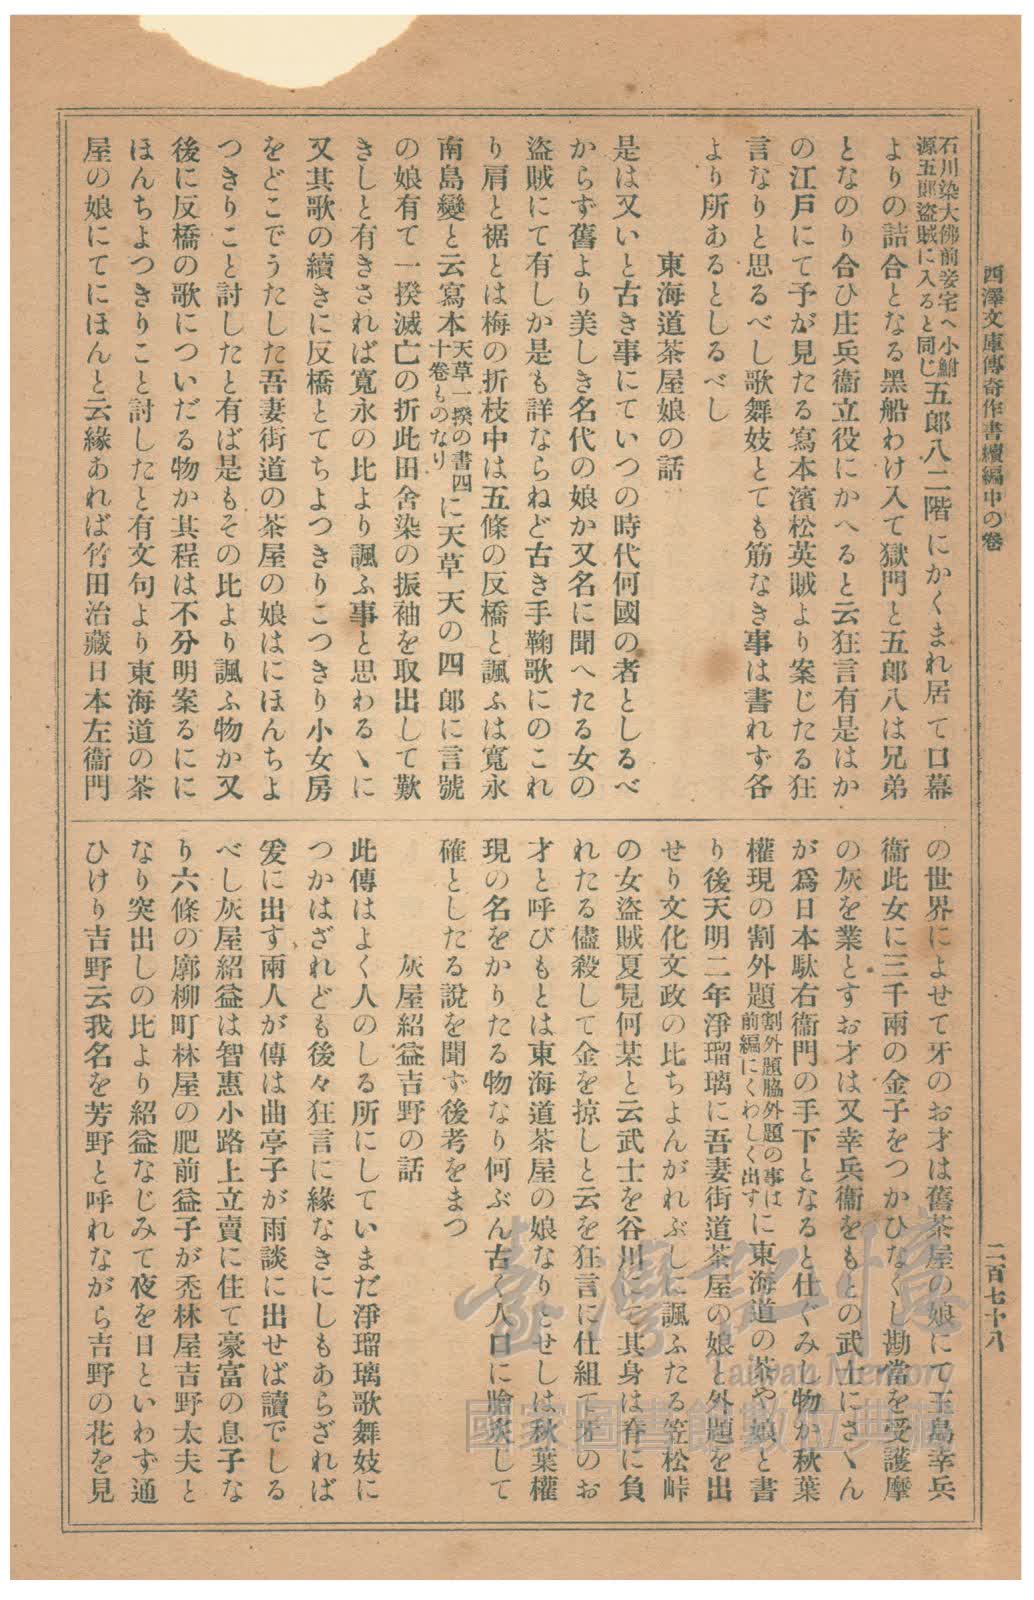 西澤文庫傳奇作書續編中の卷
二百七十八
石川染大佛前妾宅へ小鮒
源五郎盜賊に入ると同じ
五郎八二階にかくまれ居て口幕
よりの詰合となる黑船わけ入て獄門と五郎八は兄弟
となのり合ひ庄兵衞立役にかへると云狂言有是はか
の江戸にて予が見たる寫本濱松英賊より案じたる狂
言なりと思るべし歌舞妓とても筋なき事は書れず各
より所あるとしるべし
東海道茶屋娘の話
是は又いと古き事にていつの時代何國の者としるべ
からず舊より美しき名代の娘か又名に聞へたる女の
盜賊にて有しか是も詳ならねど古き手鞠歌にのこれ
り肩と裾とは梅の折枝中は五條の反橋と諷ふは寬永
南島變と云寫本
天草一揆の書四
十卷ものなり
に天草天の四郎に言號
の娘有て一揆滅亡の折此田舍染の振袖を取出して歎
きしと有きされば寬永の比より諷ふ事と思わるゝに
又其歌の續きに反橋とてちよつきりこつきり小女房
をどこでうたした吾妻街道の茶屋の娘はにほんちよ
つきりこと討したと有ば是もその比より諷ふ物か又
後に反橋の歌についだる物か其程は不分明案るにに
ほんちよつきりこと討したと有文句より東海道の茶
屋の娘にてにほんと云緣あれば竹田治藏日本左衞門
の世界によせて牙のお才は舊茶屋の娘にて玉島幸兵
衞此女に三千兩の金子をつかひなくし勘當を受護摩
の灰を業とすお才は又幸兵衞をもとの武士にさゝん
が爲日本駄右衞門の手下となると仕ぐみし物か秋葉
權現の割外題
割外題脇外題の事は
前編にくわしく出す
に東海道の茶や娘と書
り後天明二年淨瑠璃に吾妻街道茶屋の娘と外題を出
せり文化文政の比ちよんがれぶしに諷ふたる笠松峠
の女盜賊夏見何某と云武士を谷川にて其身は脊に負
れたる儘殺して金を掠しと云を狂言に仕組て牙のお
才と呼びもとは東海道茶屋の娘なりとせしは秋葉權
現の名をかりたる物なり何ぶん古く人口に膾炙して
確としたる說を聞ず後考をまつ
灰屋紹益吉野の話
此傳はよく人のしる所にしていまだ淨瑠璃歌舞妓に
つかはざれども後々狂言に緣なきにしもあらざれば
爰に出す兩人が傳は曲亭子が雨談に出せば讀でしる
べし灰屋紹益は智惠小路上立賣に住て豪富の息子な
り六條の廓柳町林屋の肥前益子が禿林屋吉野太夫と
なり突出しの比より紹益なじみて夜を日といわず通
ひけり吉野云我名を芳野と呼れながら吉野の花を見
臺灣記憶
Taiwan Memory
國家圖書館數位典藏